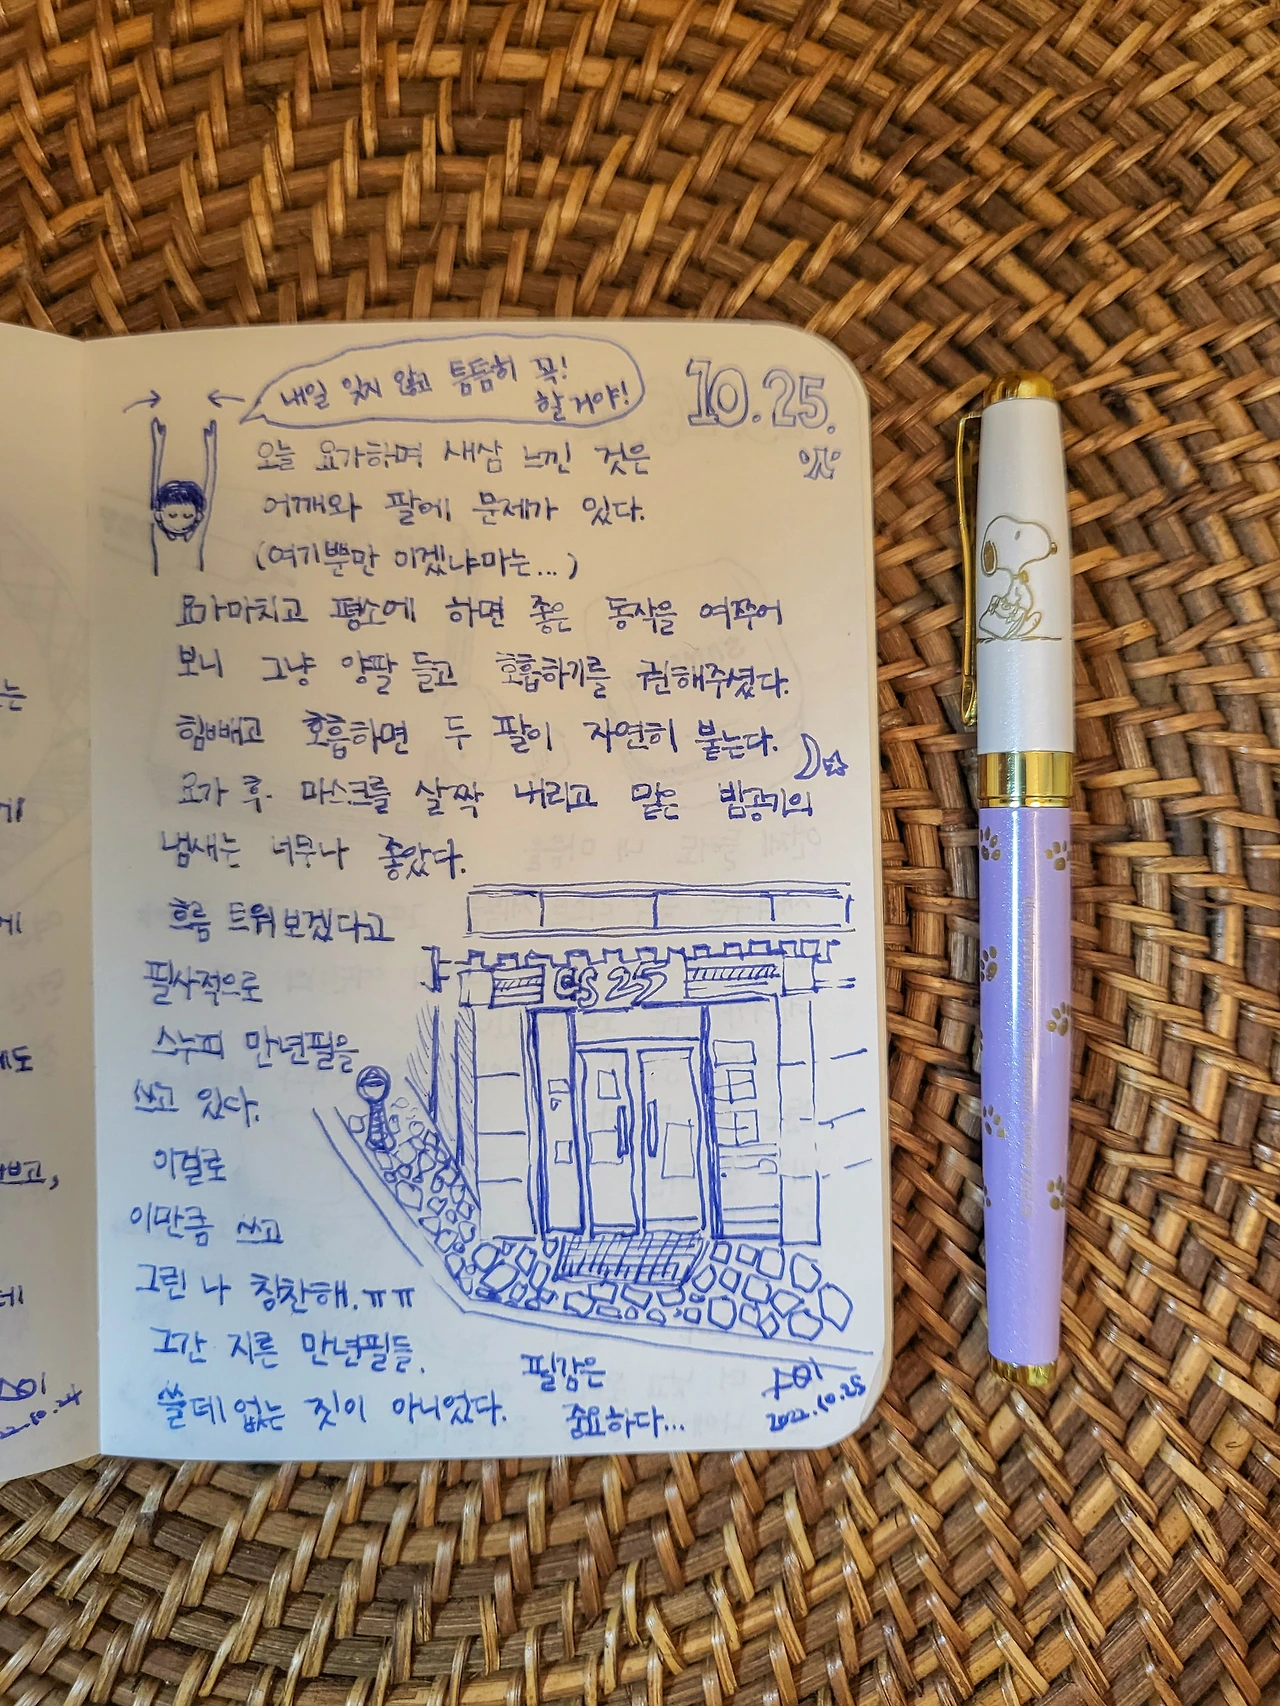 내일 잊지 않고 틈틈히 꼭!
할거야!
10.25.
火
오늘 요가하며 새삼 느낀 것은
어깨와 팔에 문제가 있다.
(여기뿐만 이겠냐마는...)
요가마치고 평소에 하면 좋은 동작을 여쭈어
보니 그냥 양팔 들고 호흡하기를 권해주셨다.
힘빼고 호흡하면 두 팔이 자연히 붙는다.
요가 후. 마스크를 살짝 내리고 맡은 밤공기의
냄새는 너무나 좋았다.
흐름 트워보겠다고
필사적으로
스누피 만년필을
쓰고 있다.
이걸로
이만큼 쓰고
그린 나 칭찬해.ㅠㅠ
그간 지른 만년필들.
쓸데없는 짓이 아니었다.
GS25
필감은
중요하다...
2022.10.25
는
게
에
에도
쁘고,
데